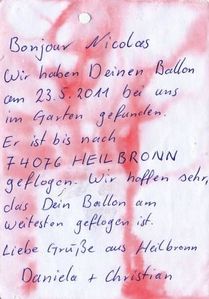 Bonjour Nicolas
Wir haben Deinen Ballon
am 23.5.2011 bei uns
im Garten gefunden.
Er ist bis nach
74076 HEILBRONN
geflogen. Wir hoffen sehr,
das Dein Ballon am
weitesten geflogen ist.
Liebe Grüße aus Heilbronn
Daniela + Christian